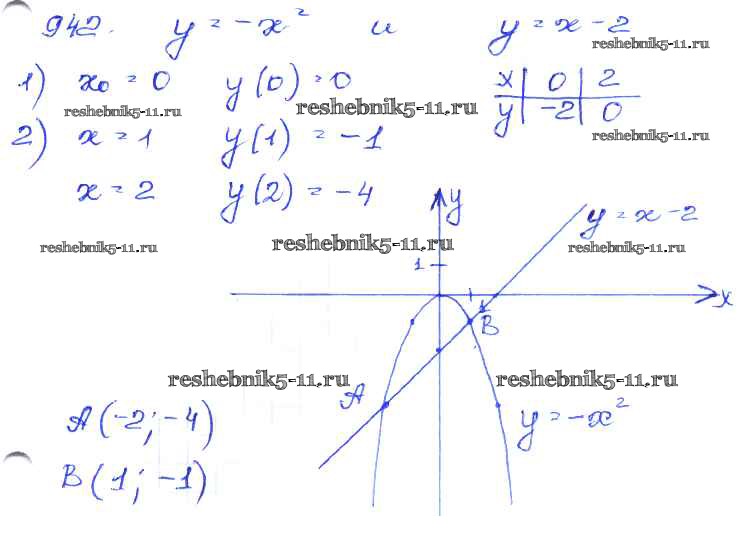 942. y = -x² и y = x - 2
reshebnik5-11.ru
1) x₀ = 0 y(0) = 0
x | 0 | 2
reshebnik5-11.ru
reshebnik5-11.ru
y | -2 | 0
2) x = 1 y(1) = -1
reshebnik5-11.ru
x = 2 y(2) = -4
y
y = x - 2
reshebnik5-11.ru
reshebnik5-11.ru
reshebnik5-11.ru
1
x
1
B
reshebnik5-11.ru
reshebnik5-11.ru
A
y = -x²
A(-2; -4)
B(1; -1)